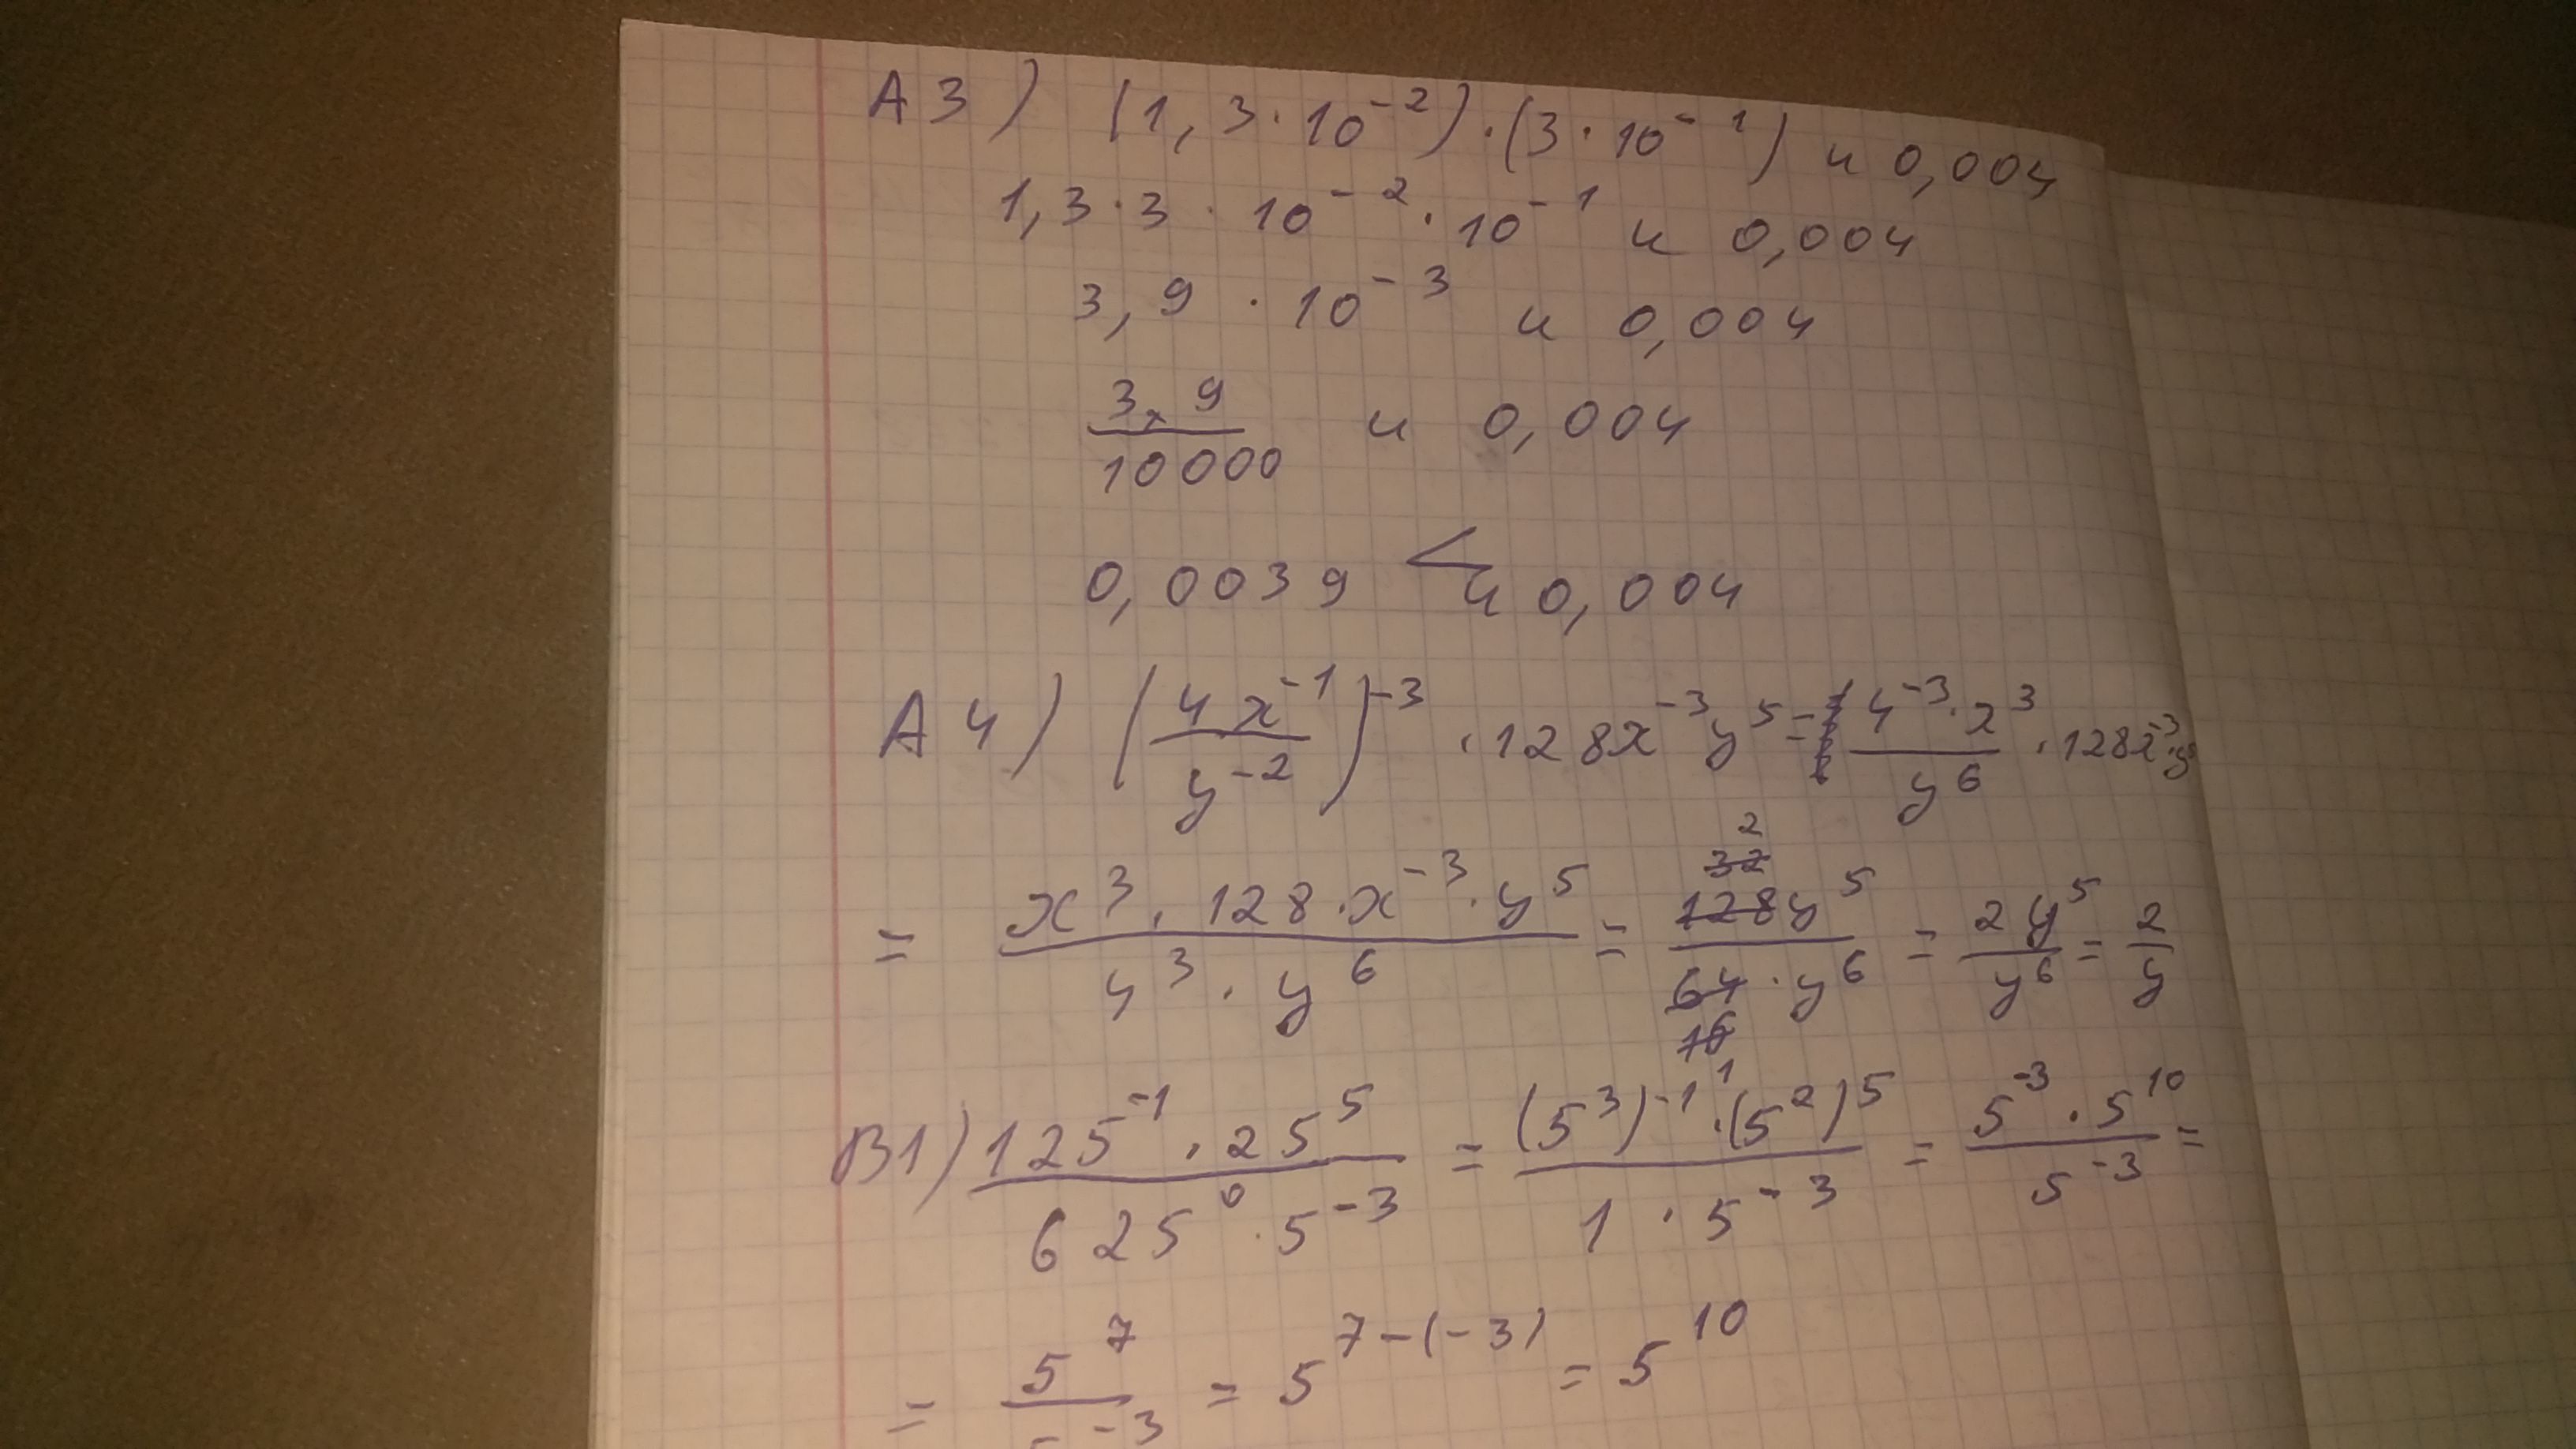 А3) (1,3·10⁻²)·(3·10⁻¹) и 0,004
1,3·3·10⁻²·10⁻¹ и 0,004
3,9·10⁻³ и 0,004
39/10000 и 0,004
0,0039 < и 0,004
А4) (4x⁻¹/y⁻²)⁻³·128x⁻³y⁵ = 4⁻³·x³/y⁶·128x⁻³·y⁵
= x³·128·x⁻³·y⁵/4³·y⁶ = 128y⁵/64·y⁶ = 2y⁵/y⁶ = 2/y
В1) 125⁻¹·25⁵/625⁰·5⁻³ = (5³)⁻¹·(5²)⁵/1·5⁻³ = 5⁻³·5¹⁰/5⁻³ =
= 5⁷/5⁻³ = 5⁷⁻⁽⁻³⁾ = 5¹⁰